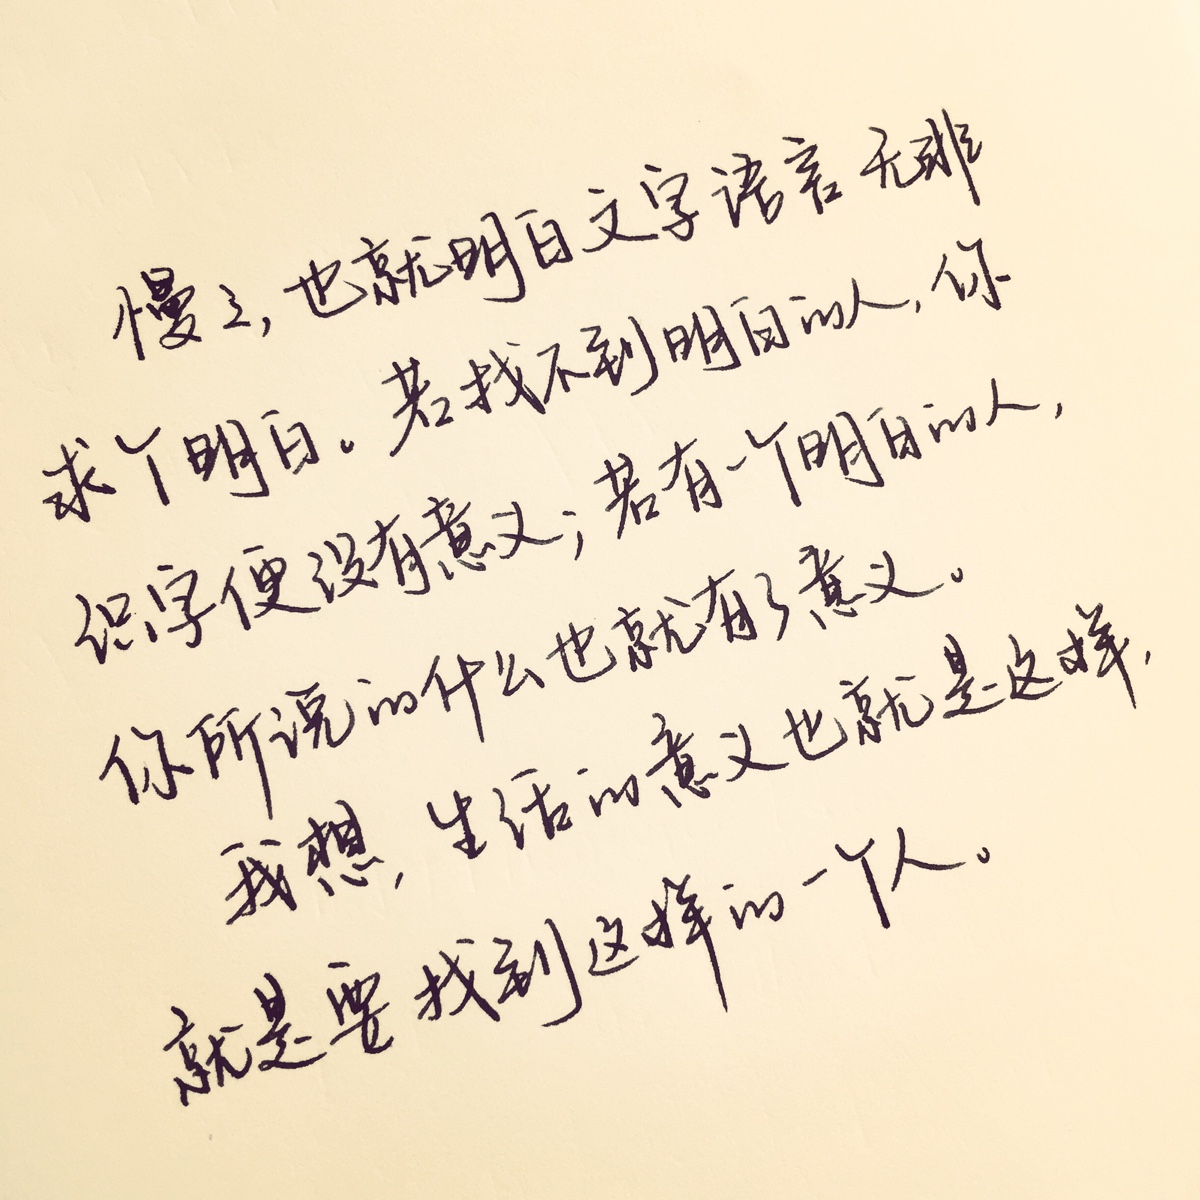 慢々，也就明白文字语言无非
求个明白。若找不到明白的人，你
识字便没有意义；若有一个明白的人，
你所说的什么也就有了意义。
我想，生活的意义也就是这样，
就是要找到这样的一个人。